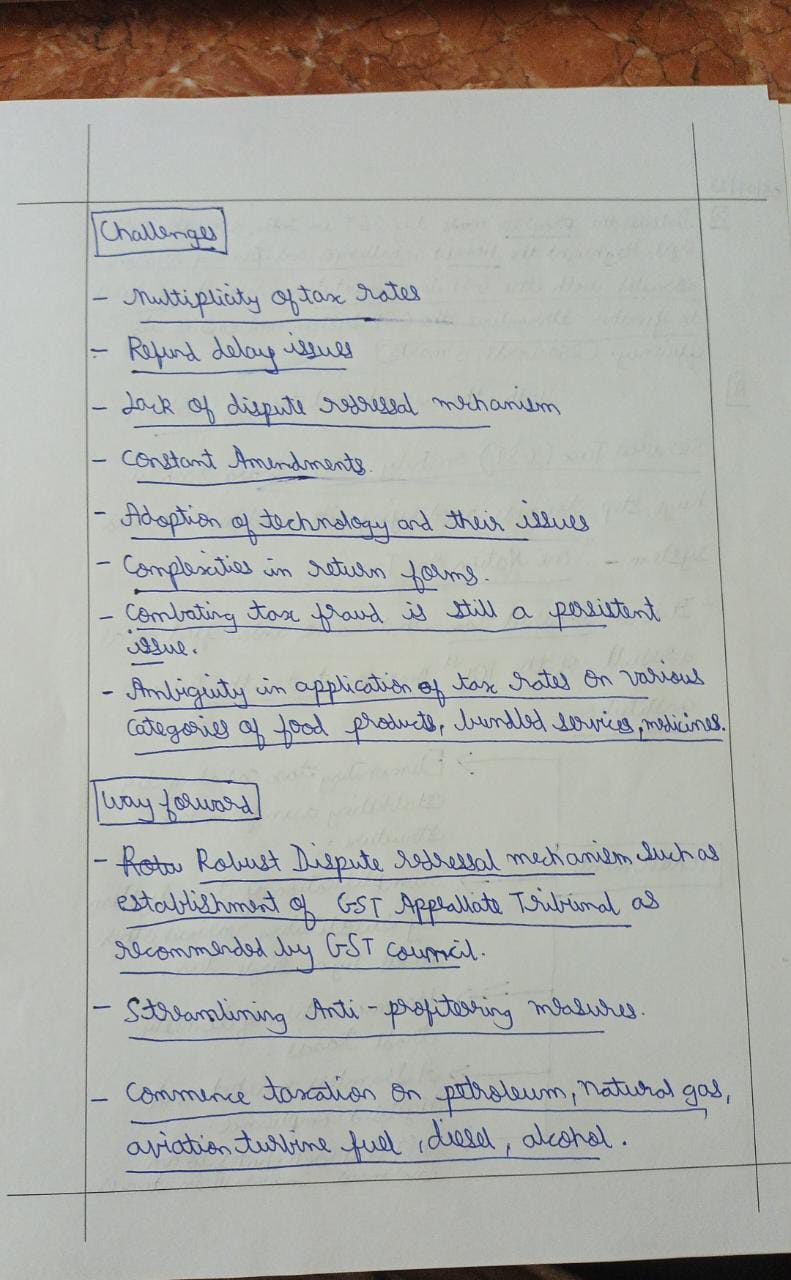 Challenges
- Multiplicity of tax rates
- Refund delay issues
- Lack of dispute redressal mechanism
- Constant Amendments.
- Adoption of technology and their issues
- Complexities in return forms.
- Combating tax fraud is still a persistent
issue.
- Ambiguity in application of tax rates on various
categories of food products, bundled services, medicines.
Way forward
- Robust Dispute redressal mechanism such as
establishment of GST Appeallate Tribunal as
recommended by GST council.
- Streamlining Anti-profiteering measures.
- Commence taxation on petroleum, natural gas,
aviation turbine fuel, diesel, alcohol.